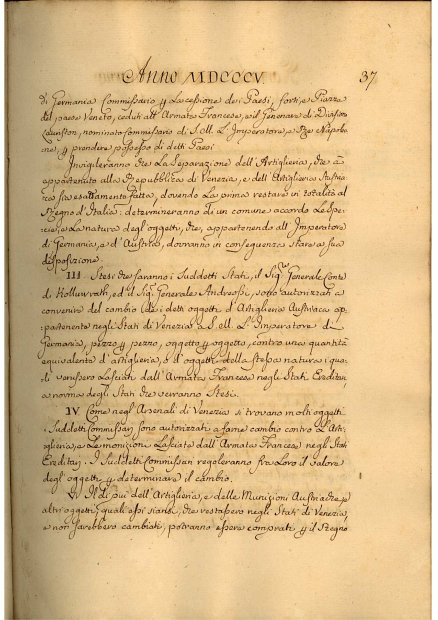 Anno MDCCCV
37
di Germania Commissario ꝑ la cessione dei Paesi, forti, e Piazze
del paese Veneto, ceduti all'Armata Francese, e il Generale di Division
Lauriston, nominato Commissario di S. M. L'Imperatore, e Re Napoleo
ne, ꝑ prendere possesso di detti Paesi
Invigileranno che la separazione dell'Artiglieria, che à
appartenuto alla Repubblica di Venezia, e dell'Artiglieria Austria
ca sia esattamente fatta, dovendo la prima restare in totalità al
Regno d'Italia: determineranno di un comune accordo la Spe
cie, e la natura degli oggetti, che, appartenendo all'Imperatore
di Germania, e d'Austria, dovranno in conseguenza stare a sua
disposizione.
III. Stesi che saranno i suddetti Stati, il Sigr Generale Conte
di Kollowrath, ed il Sigr Generale Andreossi, sono autorizzati a
convenire del cambio dei detti oggetti d'Artiglieria Austriaca ap:
partenente negli Stati di Venezia a S. M. L'Imperatore di
Germania, pezzo ꝑ pezzo, oggetto ꝑ oggetto, contro una quantità
equivalente d'artiglieria, e d'oggetti della stessa natura i qua
li venissero lasciati dall'Armata Francese negli Stati Ereditari
a norma degli Stati che verranno stesi.
IV. Come negli Arsenali di Venezia si trovano molti oggetti
i suddetti Commissari sono autorizzati a farne cambio contro l'Art:
iglieria, e le monizioni lasciate dall'Armata Francese negli Stati
Ereditari. I suddetti Commissari regoleranno fra loro il valore
degli oggetti ꝑ determinare il cambio.
V. Il di più dell'Artiglieria, e delle Munizioni Austriache, e
altri oggetti, quali essi siansi, che restassero negli Stati di Venezia,
e non sarebbero cambiati, potranno essere comprati ꝑ il Regno